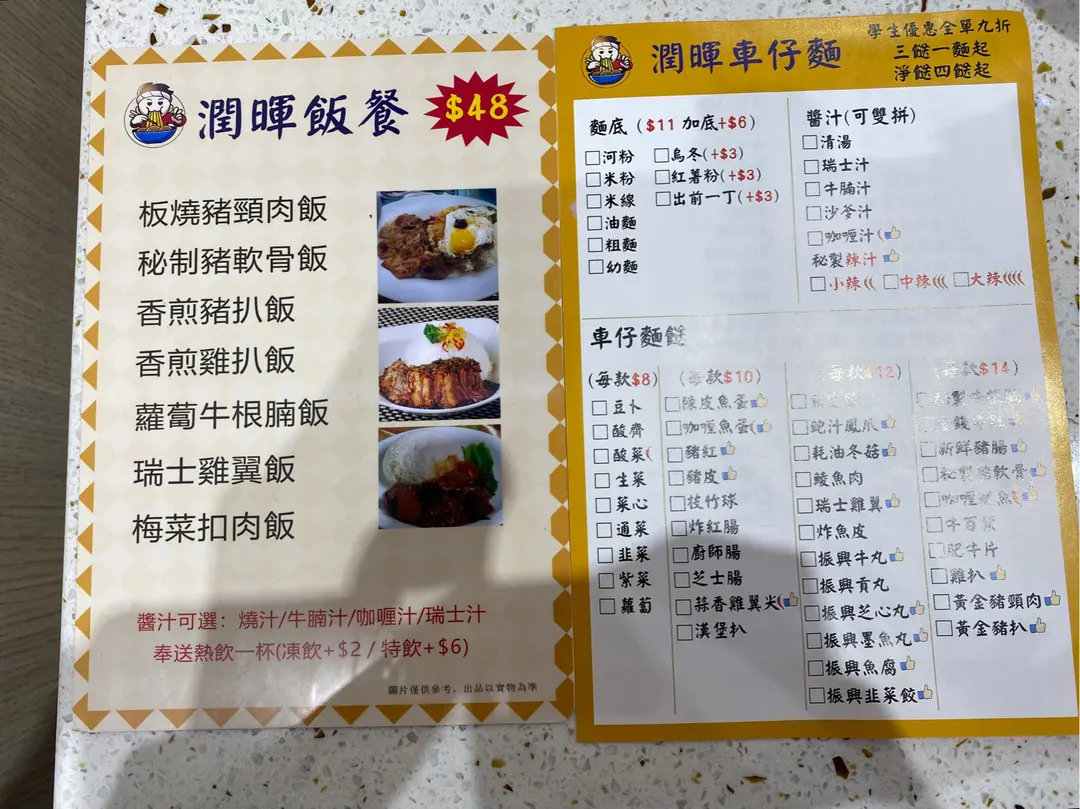 潤暉飯餐
$48
板燒豬頸肉飯
秘制豬軟骨飯
香煎豬扒飯
香煎雞扒飯
蘿蔔牛根腩飯
瑞士雞翼飯
梅菜扣肉飯
醬汁可選：燒汁/牛腩汁/咖喱汁/瑞士汁
奉送熱飲一杯(凍飲+$2 / 特飲+$6)
圖片僅供參考，出品以實物為準
潤暉車仔麵
學生優惠全單九折
三餸一麵起
淨餸四餸起
麵底 ($11 加底+$6)
河粉
米粉
米線
油麵
粗麵
幼麵
烏冬(+$3)
紅薯粉(+$3)
出前一丁(+$3)
醬汁(可雙拼)
清湯
瑞士汁
牛腩汁
沙爹汁
咖喱汁
秘製辣汁
小辣 中辣 大辣
車仔麵餸
(每款$8)
豆卜
酸齋
酸菜
生菜
菜心
通菜
韭菜
紫菜
蘿蔔
(每款$10)
陳皮魚蛋
咖喱魚蛋
豬紅
豬皮
枝竹球
炸紅腸
廚師腸
芝士腸
蒜香雞翼尖
漢堡扒
(每款$12)
鮑汁鳳爪
蚝油冬菇
鯪魚肉
瑞士雞翼
炸魚皮
振興牛丸
振興貢丸
振興芝心丸
振興墨魚丸
振興魚腐
振興韭菜餃
(每款$14)
新鮮豬腸
秘製豬軟骨
咖喱魷魚
牛百葉
肥牛片
雞扒
黃金豬頸肉
黃金豬扒